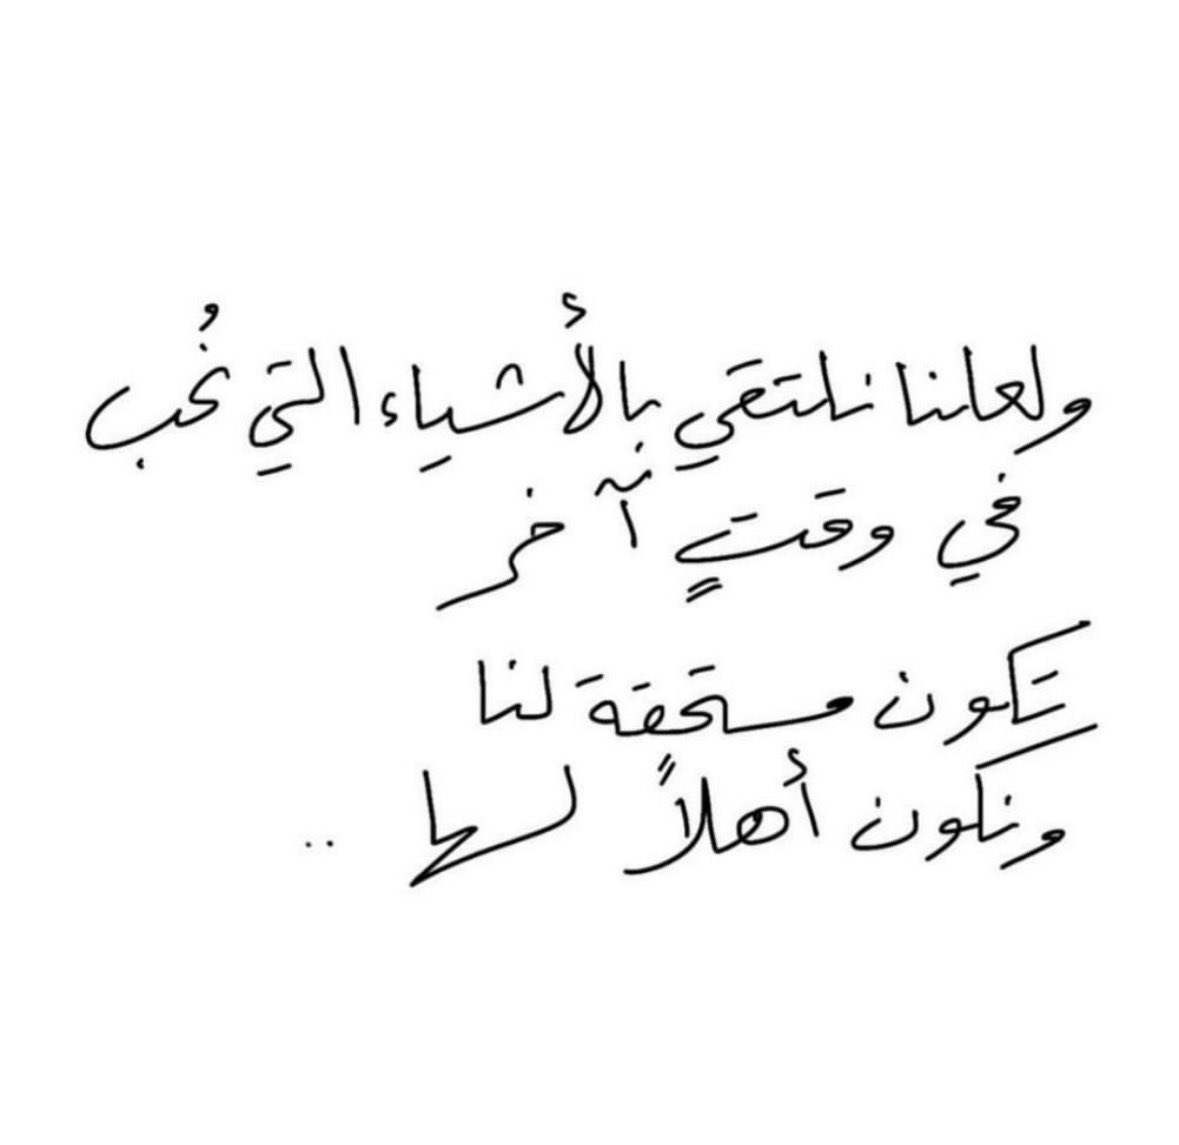 ولعلنا نلتقي بالأشياء التي نُحب
في وقتٍ آخر
تكون مستحقة لنا
ونكون أهلاً لها ..